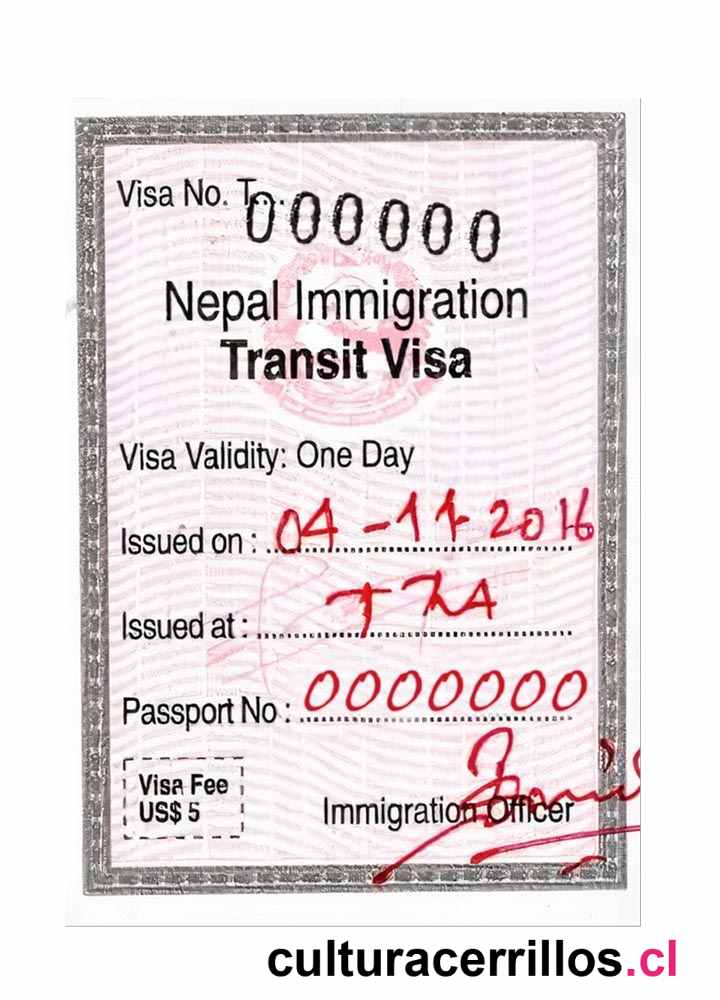 Visa No. T...000000
Nepal Immigration
Transit Visa
Visa Validity: One Day
Issued on : 04-11-2016
Issued at : TIA
Passport No : 0000000
Visa Fee
US$ 5
Immigration Officer
culturacerrillos.cl